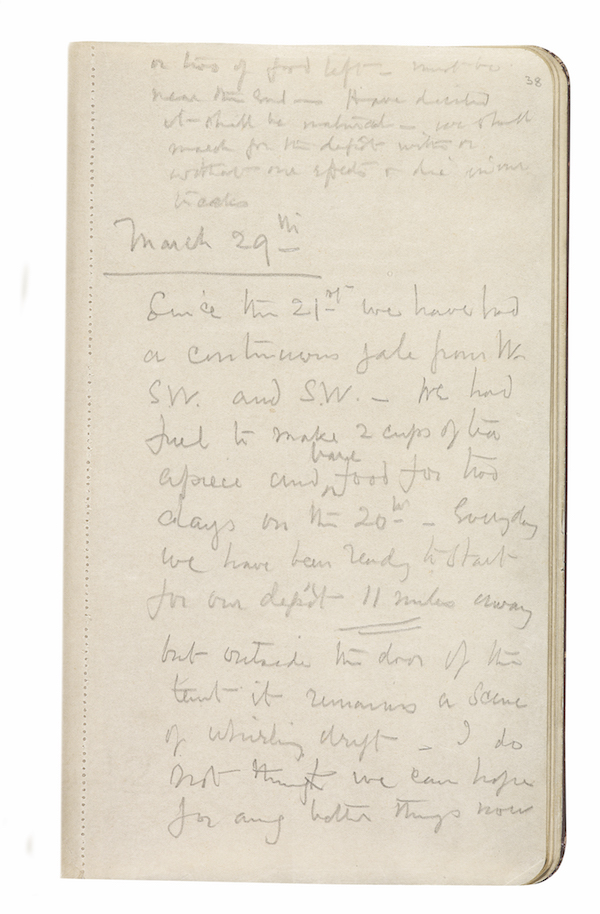 38
or two of food left - must be
near the end - Have decided
it shall be natural - we shall
march for the depôt with or
without our effects & die in our
tracks
March 29th
Since the 21st we have had
a continuous gale from W.
SW. and S.W. - We had
fuel to make 2 cups of tea
apiece and bare food for two
days on the 20th - Everyday
we have been ready to start
for our depôt 11 miles away
but outside the door of the
tent it remains a scene
of whirling drift - I do
not think we can hope
for any better things now